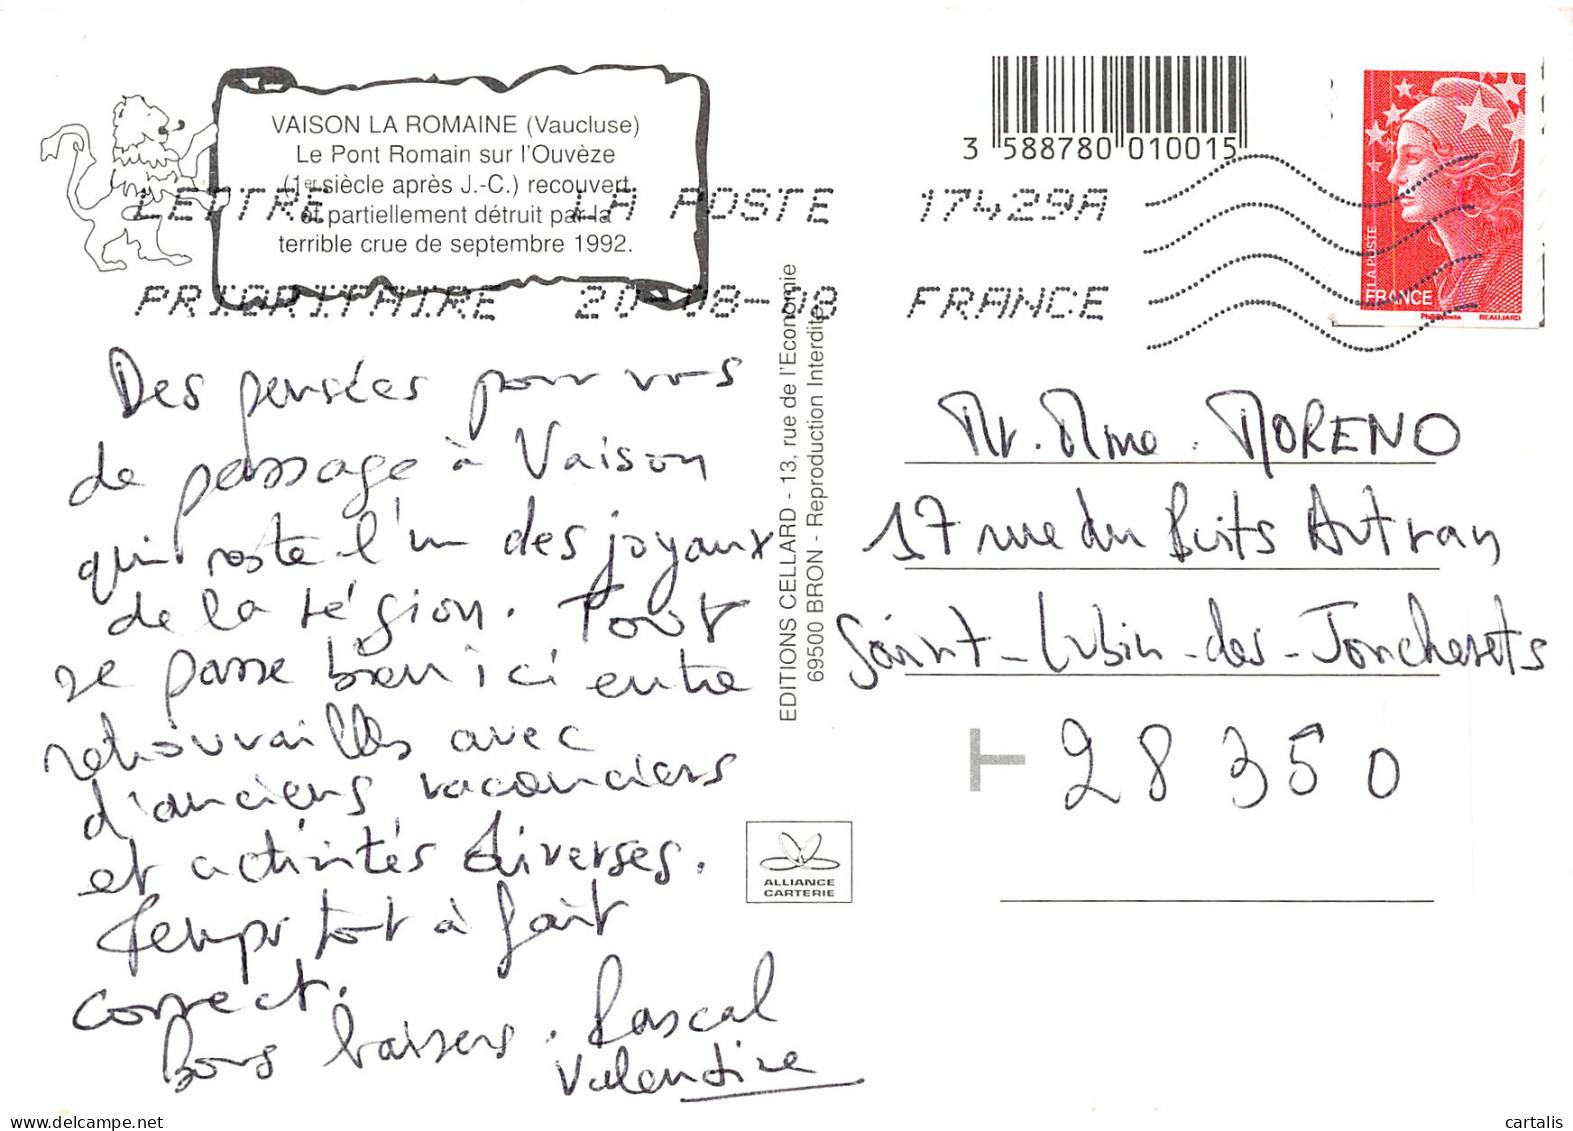 VAISON LA ROMAINE (Vaucluse)
Le Pont Romain sur l'Ouvèze
(1er siècle après J.-C.) recouvert
et partiellement détruit par la
terrible crue de septembre 1992.
3 588780 010015
LETTRE LA POSTE 17429A
PRIORITAIRE 20-08-08 FRANCE
LA POSTE
FRANCE
Phil@poste BEAUJARD
Des pensées pour vous
de passage à Vaison
qui reste l'un des joyaux
de la région. Tout
se passe bien ici entre
retrouvailles avec
d'anciens vacanciers
et activités diverses.
Temps tout à fait
correct.
Bons baisers. Pascal
Valentine
EDITIONS CELLARD - 13, rue de l'Economie
69500 BRON - Reproduction Interdite
Mr. Mme. MORENO
17 rue du Puits Autran
Saint-Lubin-des-Joncherets
28350
ALLIANCE
CARTERIE
cartalis